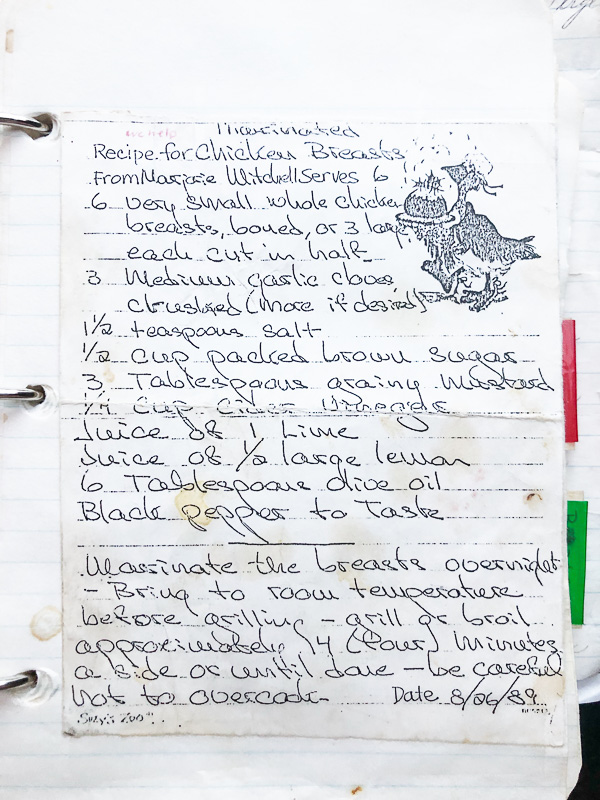 Marinated
Recipe for Chicken Breasts
From Marjorie Mitchell Serves 6
6 very small whole chicken
breasts, boned, or 3 large
each cut in half
3 Medium garlic cloves
crushed (more if desired)
1 1/2 teaspoons salt
1/2 cup packed brown sugar
3 Tablespoons grainy mustard
1/4 Cup Cider Vinegar
Juice of 1 Lime
Juice of 1/2 large lemon
6 Tablespoons olive oil
Black pepper to Taste
Marinate the breasts overnight
- Bring to room temperature
before grilling - grill or broil
approximately 4 (four) minutes
a side or until done - be careful
not to overcook-
Date 8/26/89
Suzy's Zoo